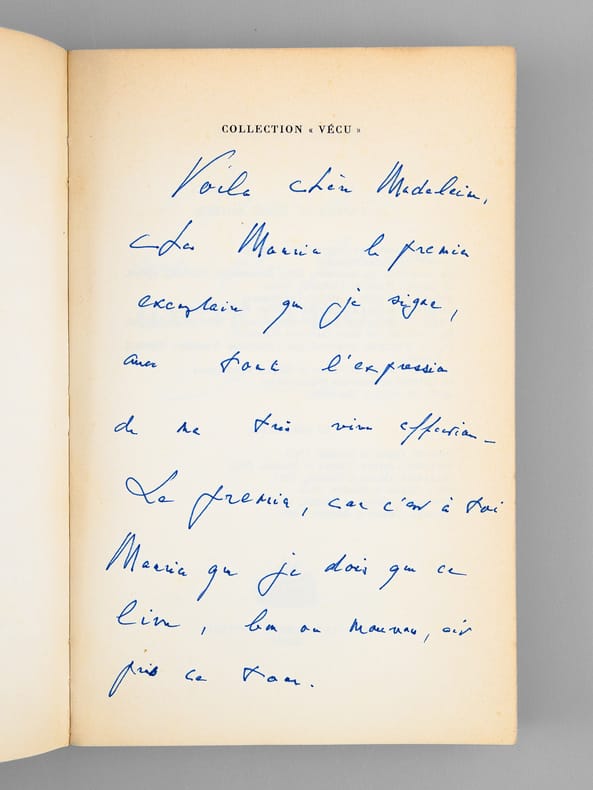 COLLECTION « VÉCU »
Voilà chère Madeleine,
cher Maurice le premier
exemplaire que je signe,
avec toute l'expression
de ma très vive affection _
Le premier, car c'est à toi
Maurice que je dois que ce
livre, bon ou mauvais, ait
pris ce tour.